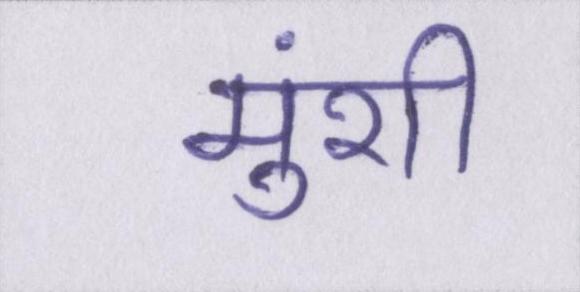 मुंशी